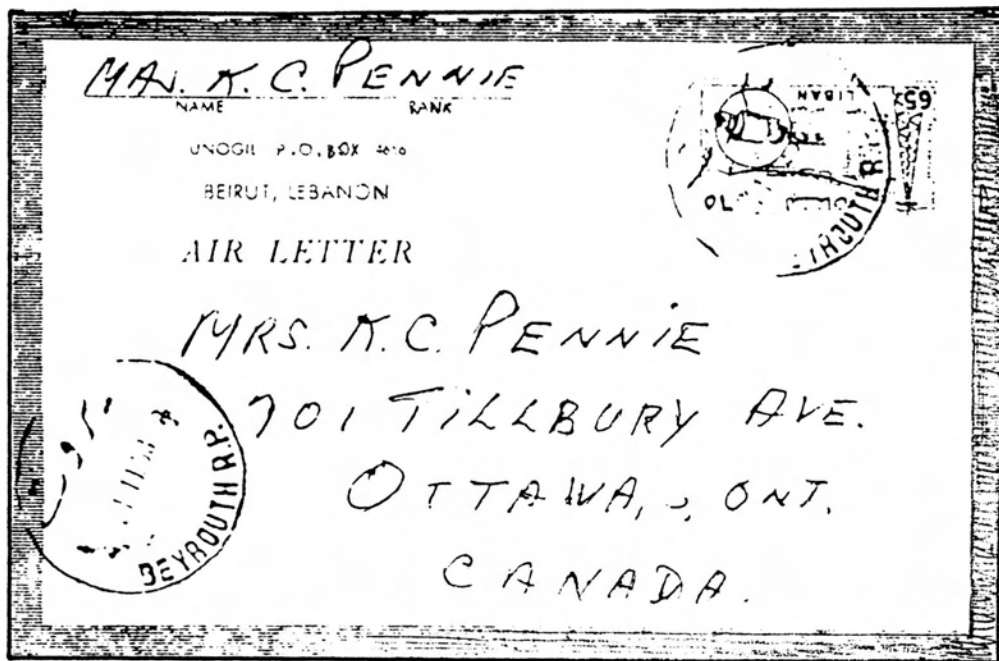 MAJ. K. C. PENNIE
NAME RANK
UNOGIL P.O. BOX
BEIRUT, LEBANON
AIR LETTER
LIBAN
65
MRS. K.C. PENNIE
701 TILLBURY AVE.
OTTAWA, ONT.
CANADA.
BEYROUTH R.P.